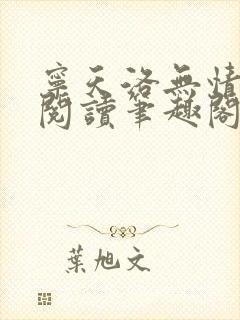 寧天洛無情
閱讀筆趣閣
葉旭文